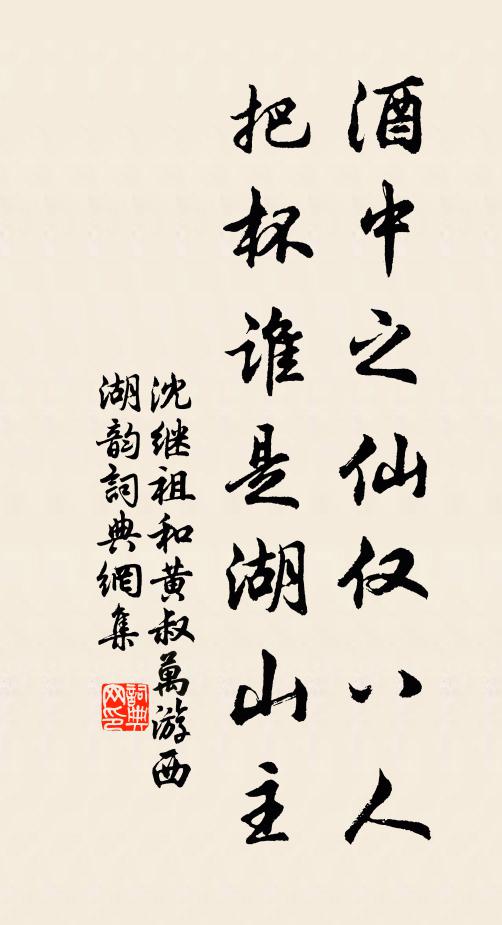 酒中之仙仅八人
把杯谁是湖山主
沈继祖和黄叔萬游西
湖韵詞典網集
詞典
网印